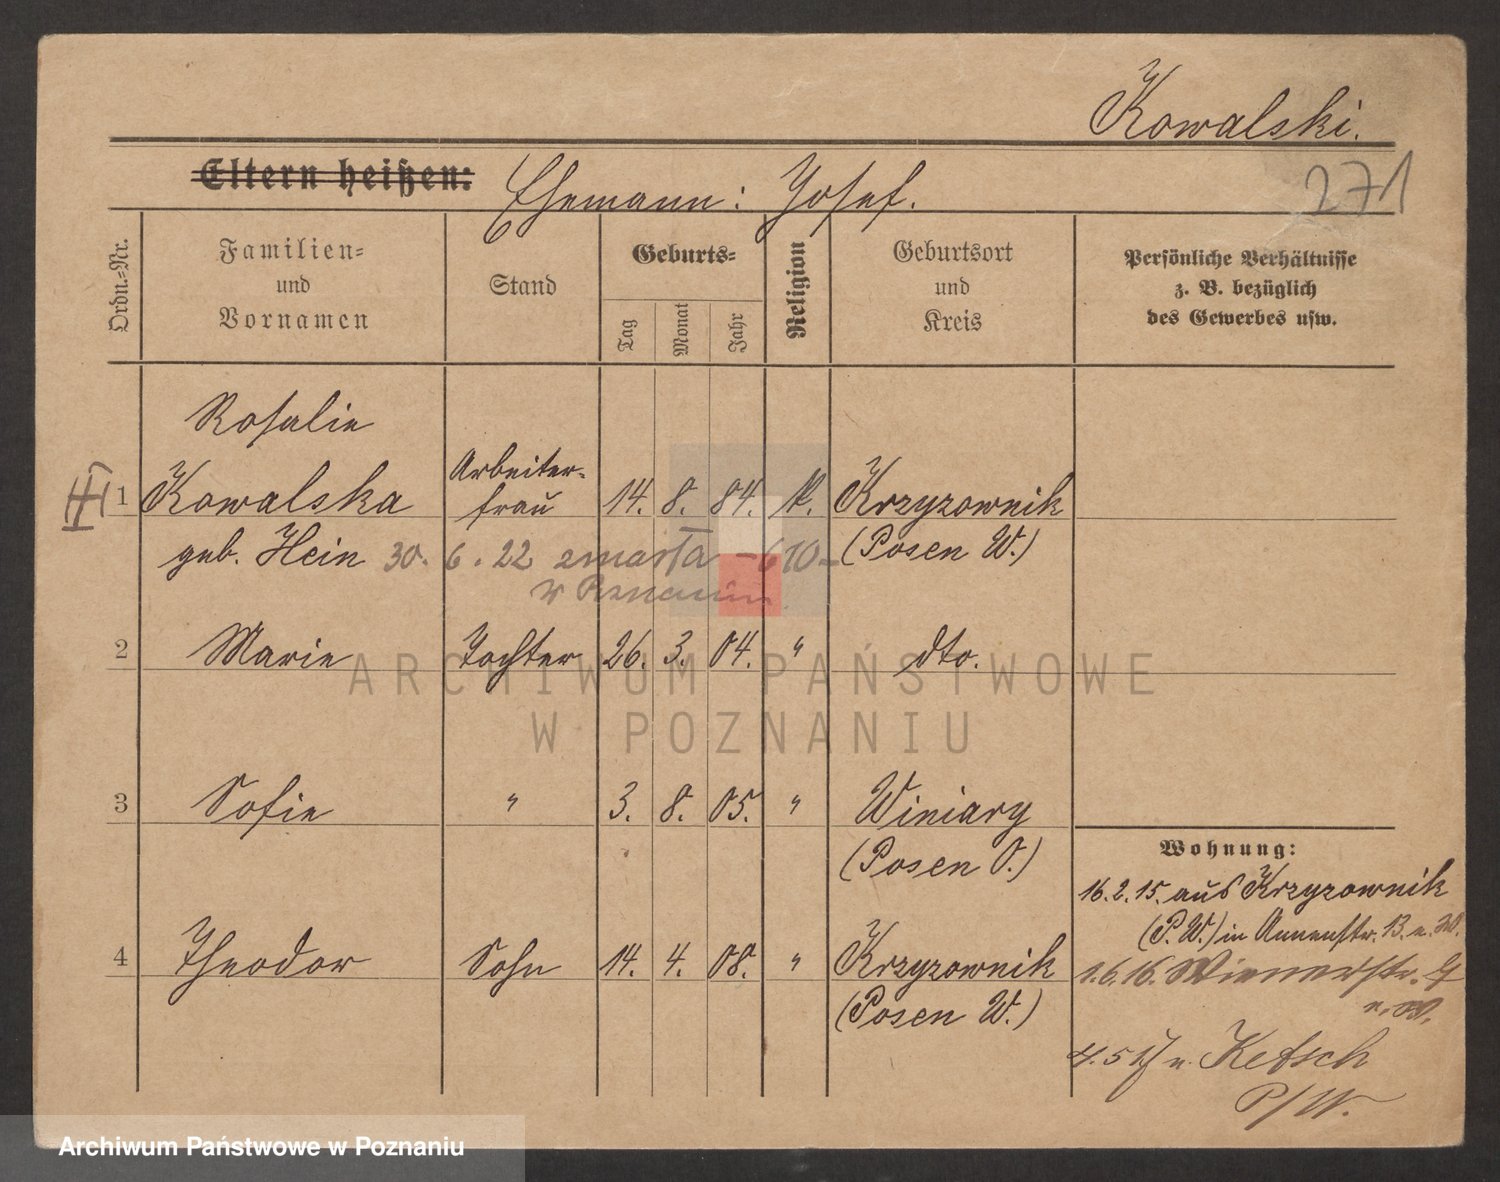 Kowalski.
271
Eltern heißen: Ehemann: Josef.
Ordn.-Nr.
Familien-
und
Vornamen
Stand
Geburts-
Tag
Monat
Jahr
Religion
Geburtsort
und
Kreis
Persönliche Verhältnisse
z. B. bezüglich
des Gewerbes usw.
Rosalie
1 Kowalska Arbeiter-
frau 14. 8. 84. k. Krzyzownik
geb. Hein 30. 6. 22 zmarła -610- (Posen W.)
w Poznaniu
2 Marie Tochter 26. 3. 04. " dto.
ARCHIWUM PAŃSTWOWE
W POZNANIU
3 Sofie " 3. 8. 05. " Winiary
(Posen O.)
Wohnung:
16.2.15. aus Krzyzownik
(P.W.) in Annenstr. 13. n. W.
4 Theodor Sohn 14. 4. 08. " Krzyzownik
(Posen W.)
1.6.16. Wienerstr.
4.5 17 n. Ketsch
P/W.
Archiwum Państwowe w Poznaniu